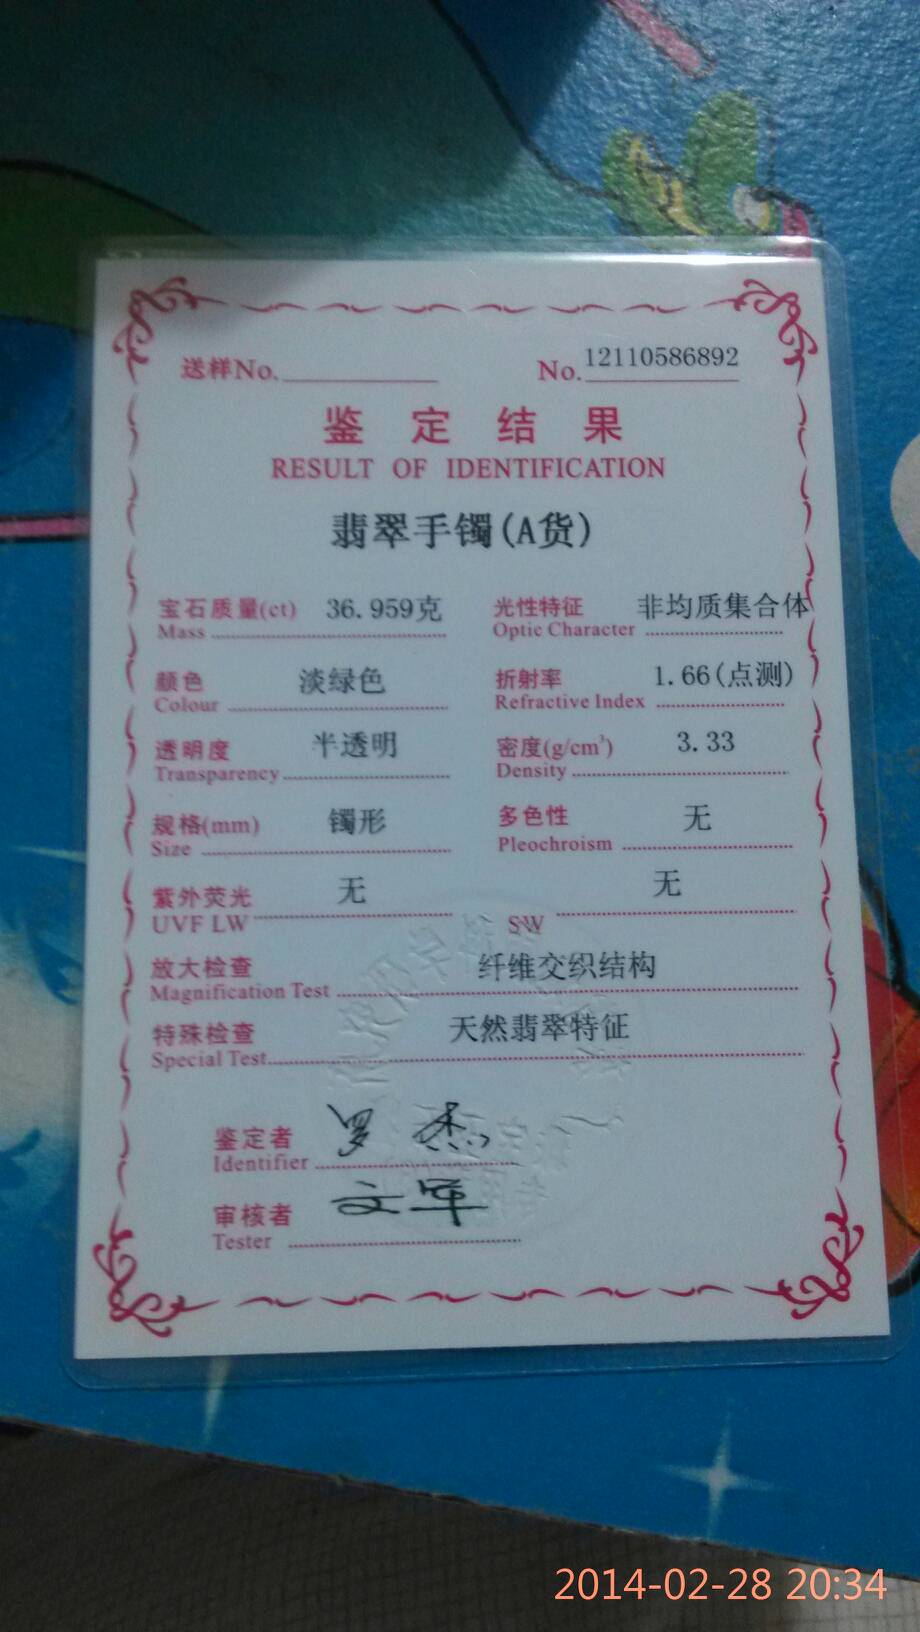 送样No. No.12110586892
鉴定结果
RESULT OF IDENTIFICATION
翡翠手镯(A货)
宝石质量(ct) 36.959克 光性特征 非均质集合体
Mass Optic Character
颜色 淡绿色 折射率 1.66(点测)
Colour Refractive Index
透明度 半透明 密度(g/cm³) 3.33
Transparency Density
规格(mm) 镯形 多色性 无
Size Pleochroism
紫外荧光 无 无
UVF LW SW
放大检查 纤维交织结构
Magnification Test
特殊检查 天然翡翠特征
Special Test
鉴定者 罗杰
Identifier
审核者 文军
Tester
2014-02-28 20:34